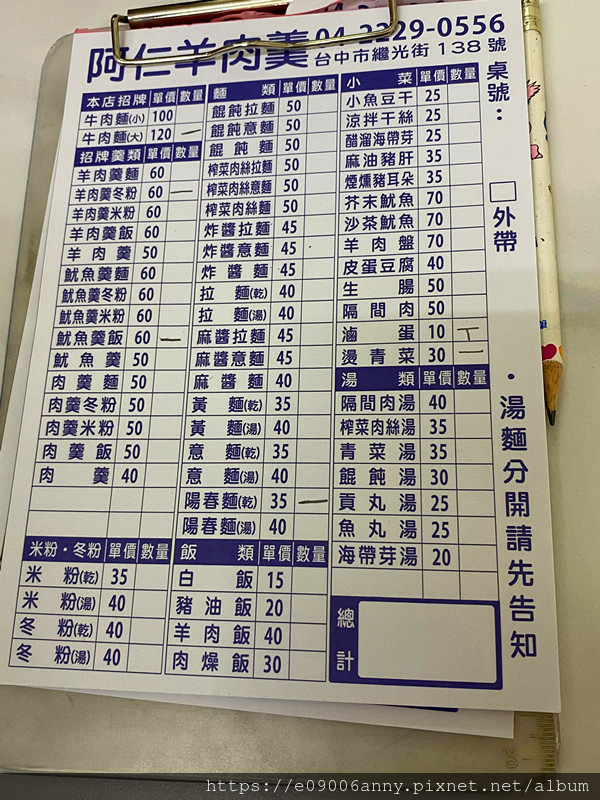 阿仁羊肉羹 04-2229-0556
台中市繼光街138號
桌號：
□外帶
・湯麵分開請先告知
本店招牌 單價 數量
牛肉麵(小) 100
牛肉麵(大) 120 一
招牌羹類 單價 數量
羊肉羹麵 60
羊肉羹冬粉 60 一
羊肉羹米粉 60
羊肉羹飯 60
羊肉羹 50
魷魚羹麵 60
魷魚羹冬粉 60
魷魚羹米粉 60
魷魚羹飯 60 一
魷魚羹 50
肉羹麵 50
肉羹冬粉 50
肉羹米粉 50
肉羹飯 50
肉羹 40
米粉・冬粉 單價 數量
米粉(乾) 35
米粉(湯) 40
冬粉(乾) 40
冬粉(湯) 40
麵類 單價 數量
餛飩拉麵 50
餛飩意麵 50
餛飩麵 50
榨菜肉絲拉麵 50
榨菜肉絲意麵 50
榨菜肉絲麵 50
炸醬拉麵 45
炸醬意麵 45
炸醬麵 45
拉麵(乾) 40
拉麵(湯) 40
麻醬拉麵 45
麻醬意麵 45
麻醬麵 40
黃麵(乾) 35
黃麵(湯) 40
意麵(乾) 35
意麵(湯) 40
陽春麵(乾) 35 一
陽春麵(湯) 40
飯類 單價 數量
白飯 15
豬油飯 20
羊肉飯 40
肉燥飯 30
小菜 單價 數量
小魚豆干 25
涼拌干絲 25
醋溜海帶芽 25
麻油豬肝 35
煙燻豬耳朵 35
芥末魷魚 70
沙茶魷魚 70
羊肉盤 70
皮蛋豆腐 40
生腸 50
隔間肉 50
滷蛋 10 丅
燙青菜 30 一
湯類 單價 數量
隔間肉湯 40
榨菜肉絲湯 35
青菜湯 35
餛飩湯 30
貢丸湯 25
魚丸湯 25
海帶芽湯 20
總計
https://e09006anny.pixnet.net/album